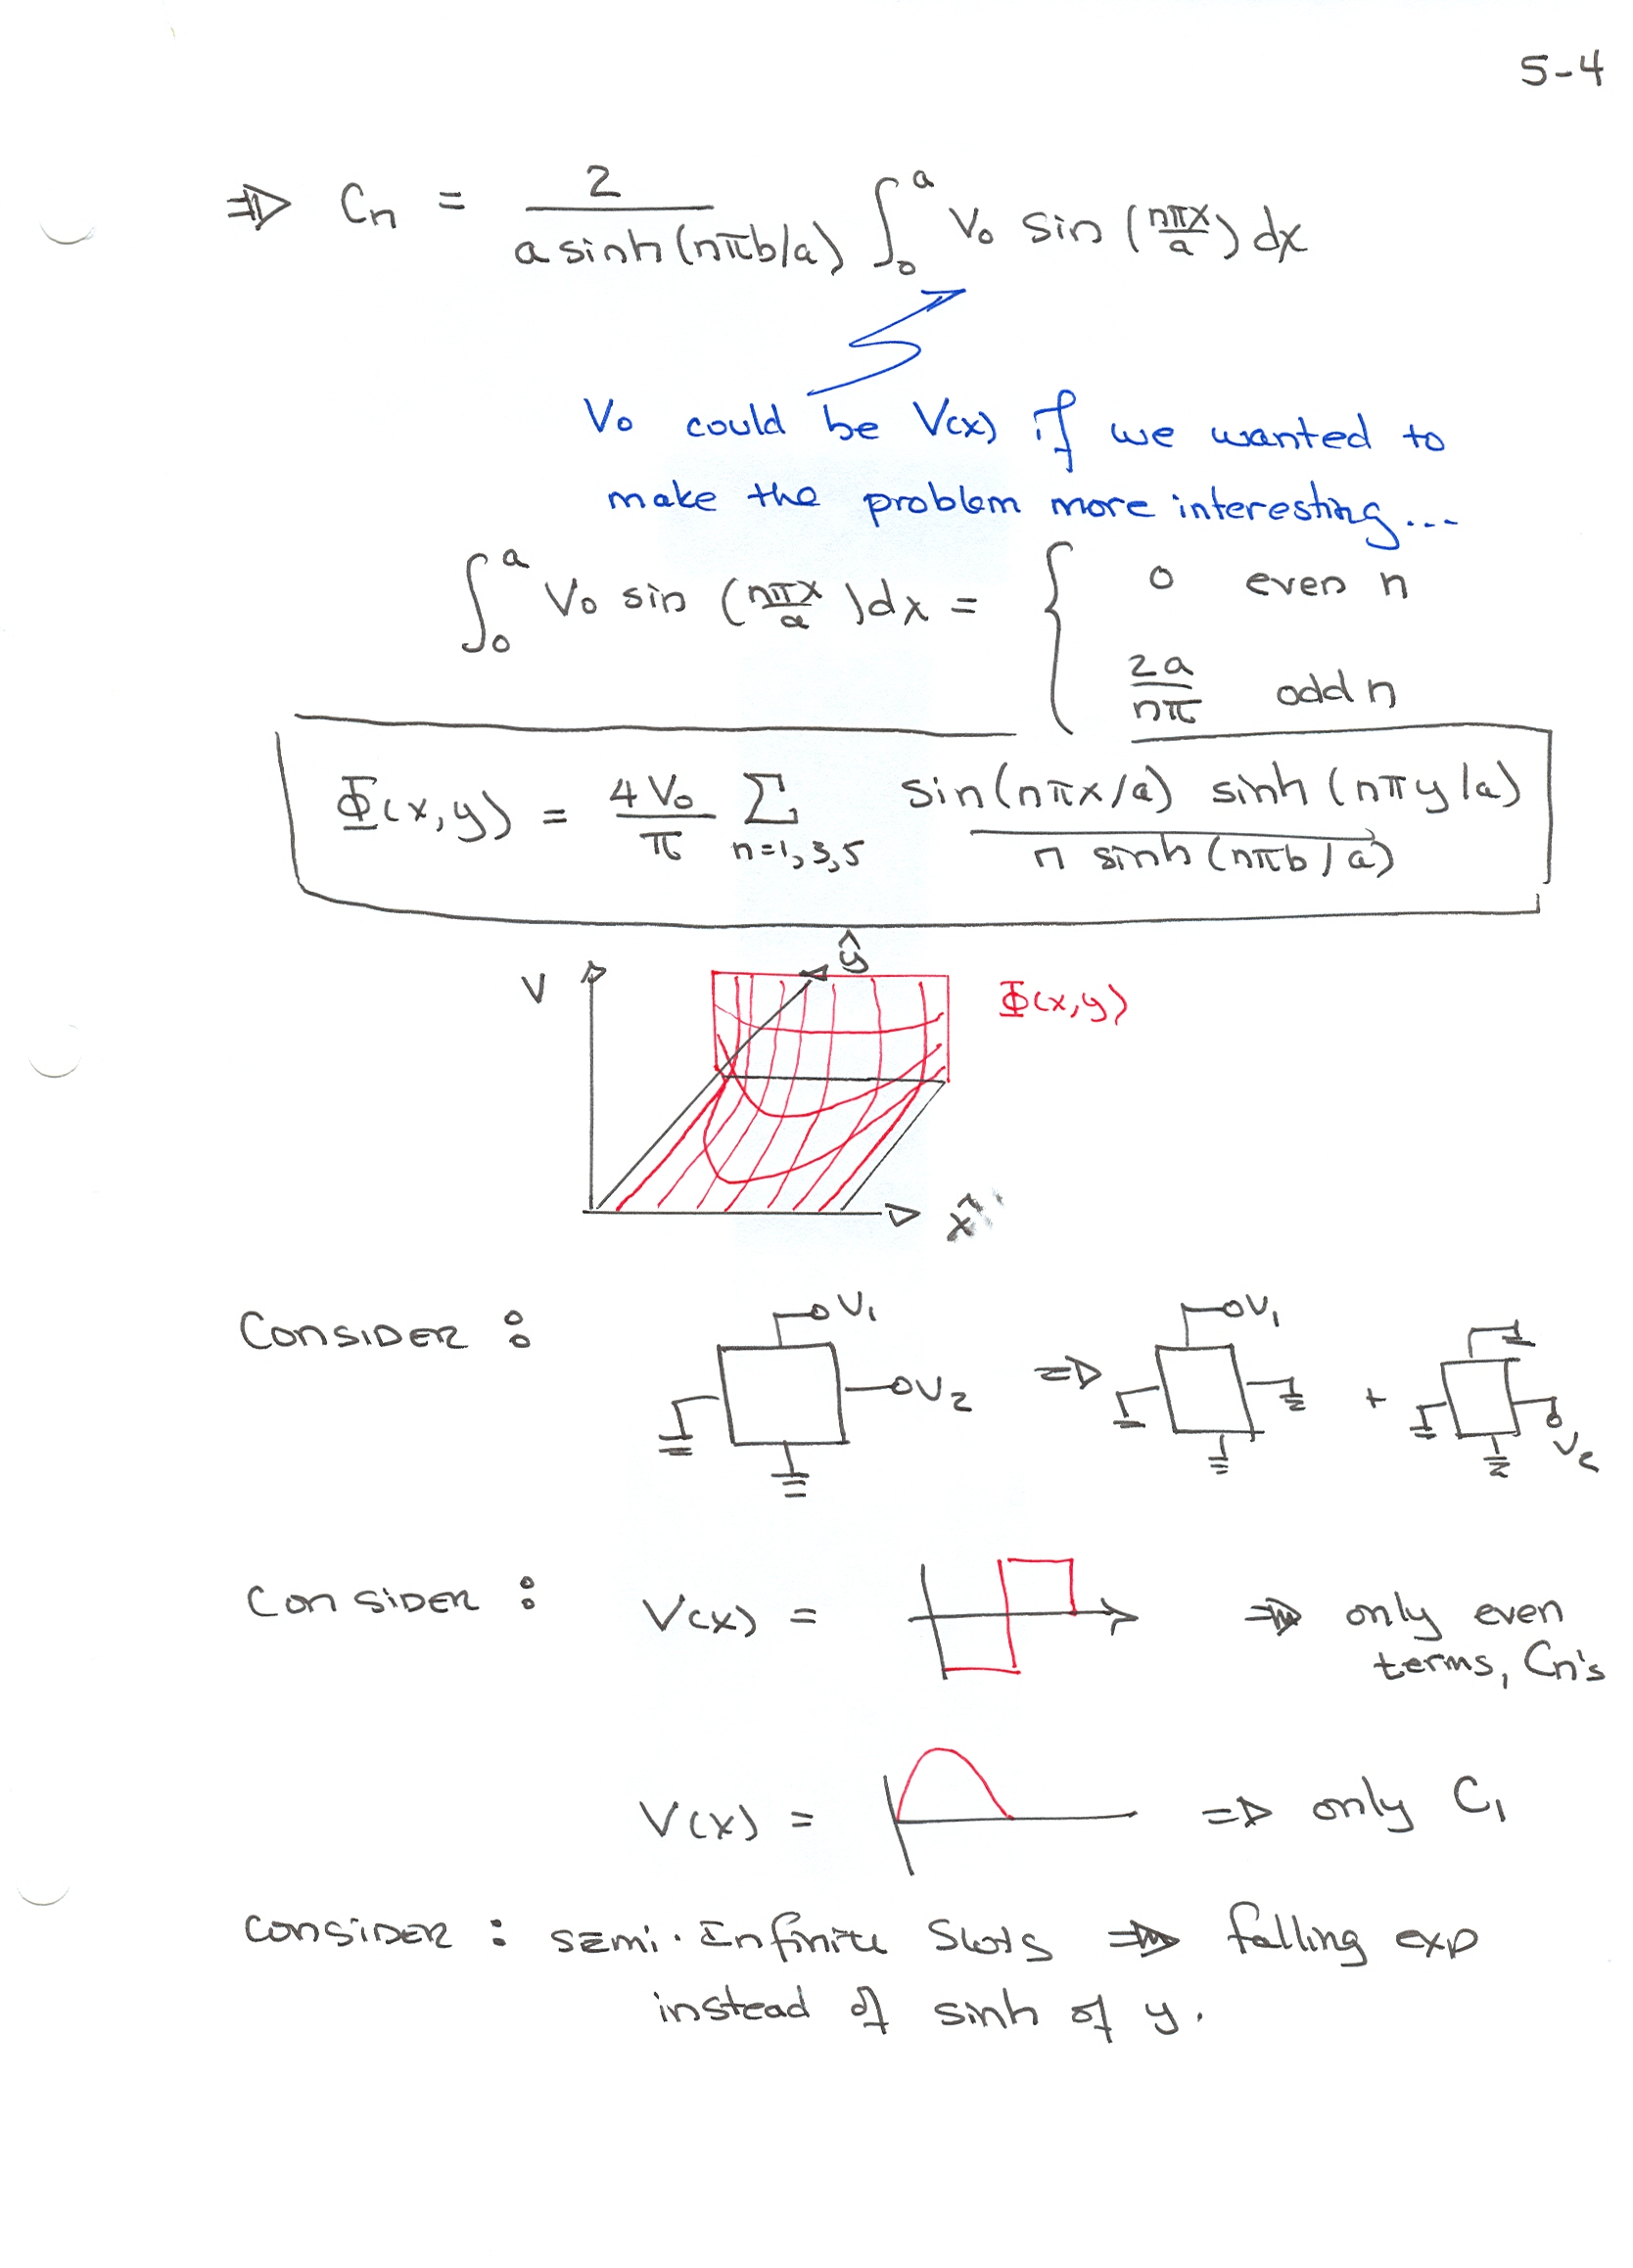 5-4
⇒ Cn = 2 / (a sinh(nπb/a)) ∫₀ᵃ V₀ sin(nπx/a) dx
V₀ could be V(x) if we wanted to
make the problem more interesting...
∫₀ᵃ V₀ sin(nπx/a)dx = { 0 even n
2a/nπ odd n
Φ(x,y) = 4V₀/π Σ n=1,3,5 sin(nπx/a) sinh(nπy/a) / n sinh(nπb/a)
V ŷ Φ(x,y)
x̂
CONSIDER : V₁ V₂ ⇒ V₁ + V₂
CONSIDER : V(x) = ⇒ only even
terms, Cn's
V(x) = ⇒ only C₁
CONSIDER : SEMI-Infinite Slots ⇒ falling exp
instead of sinh of y.